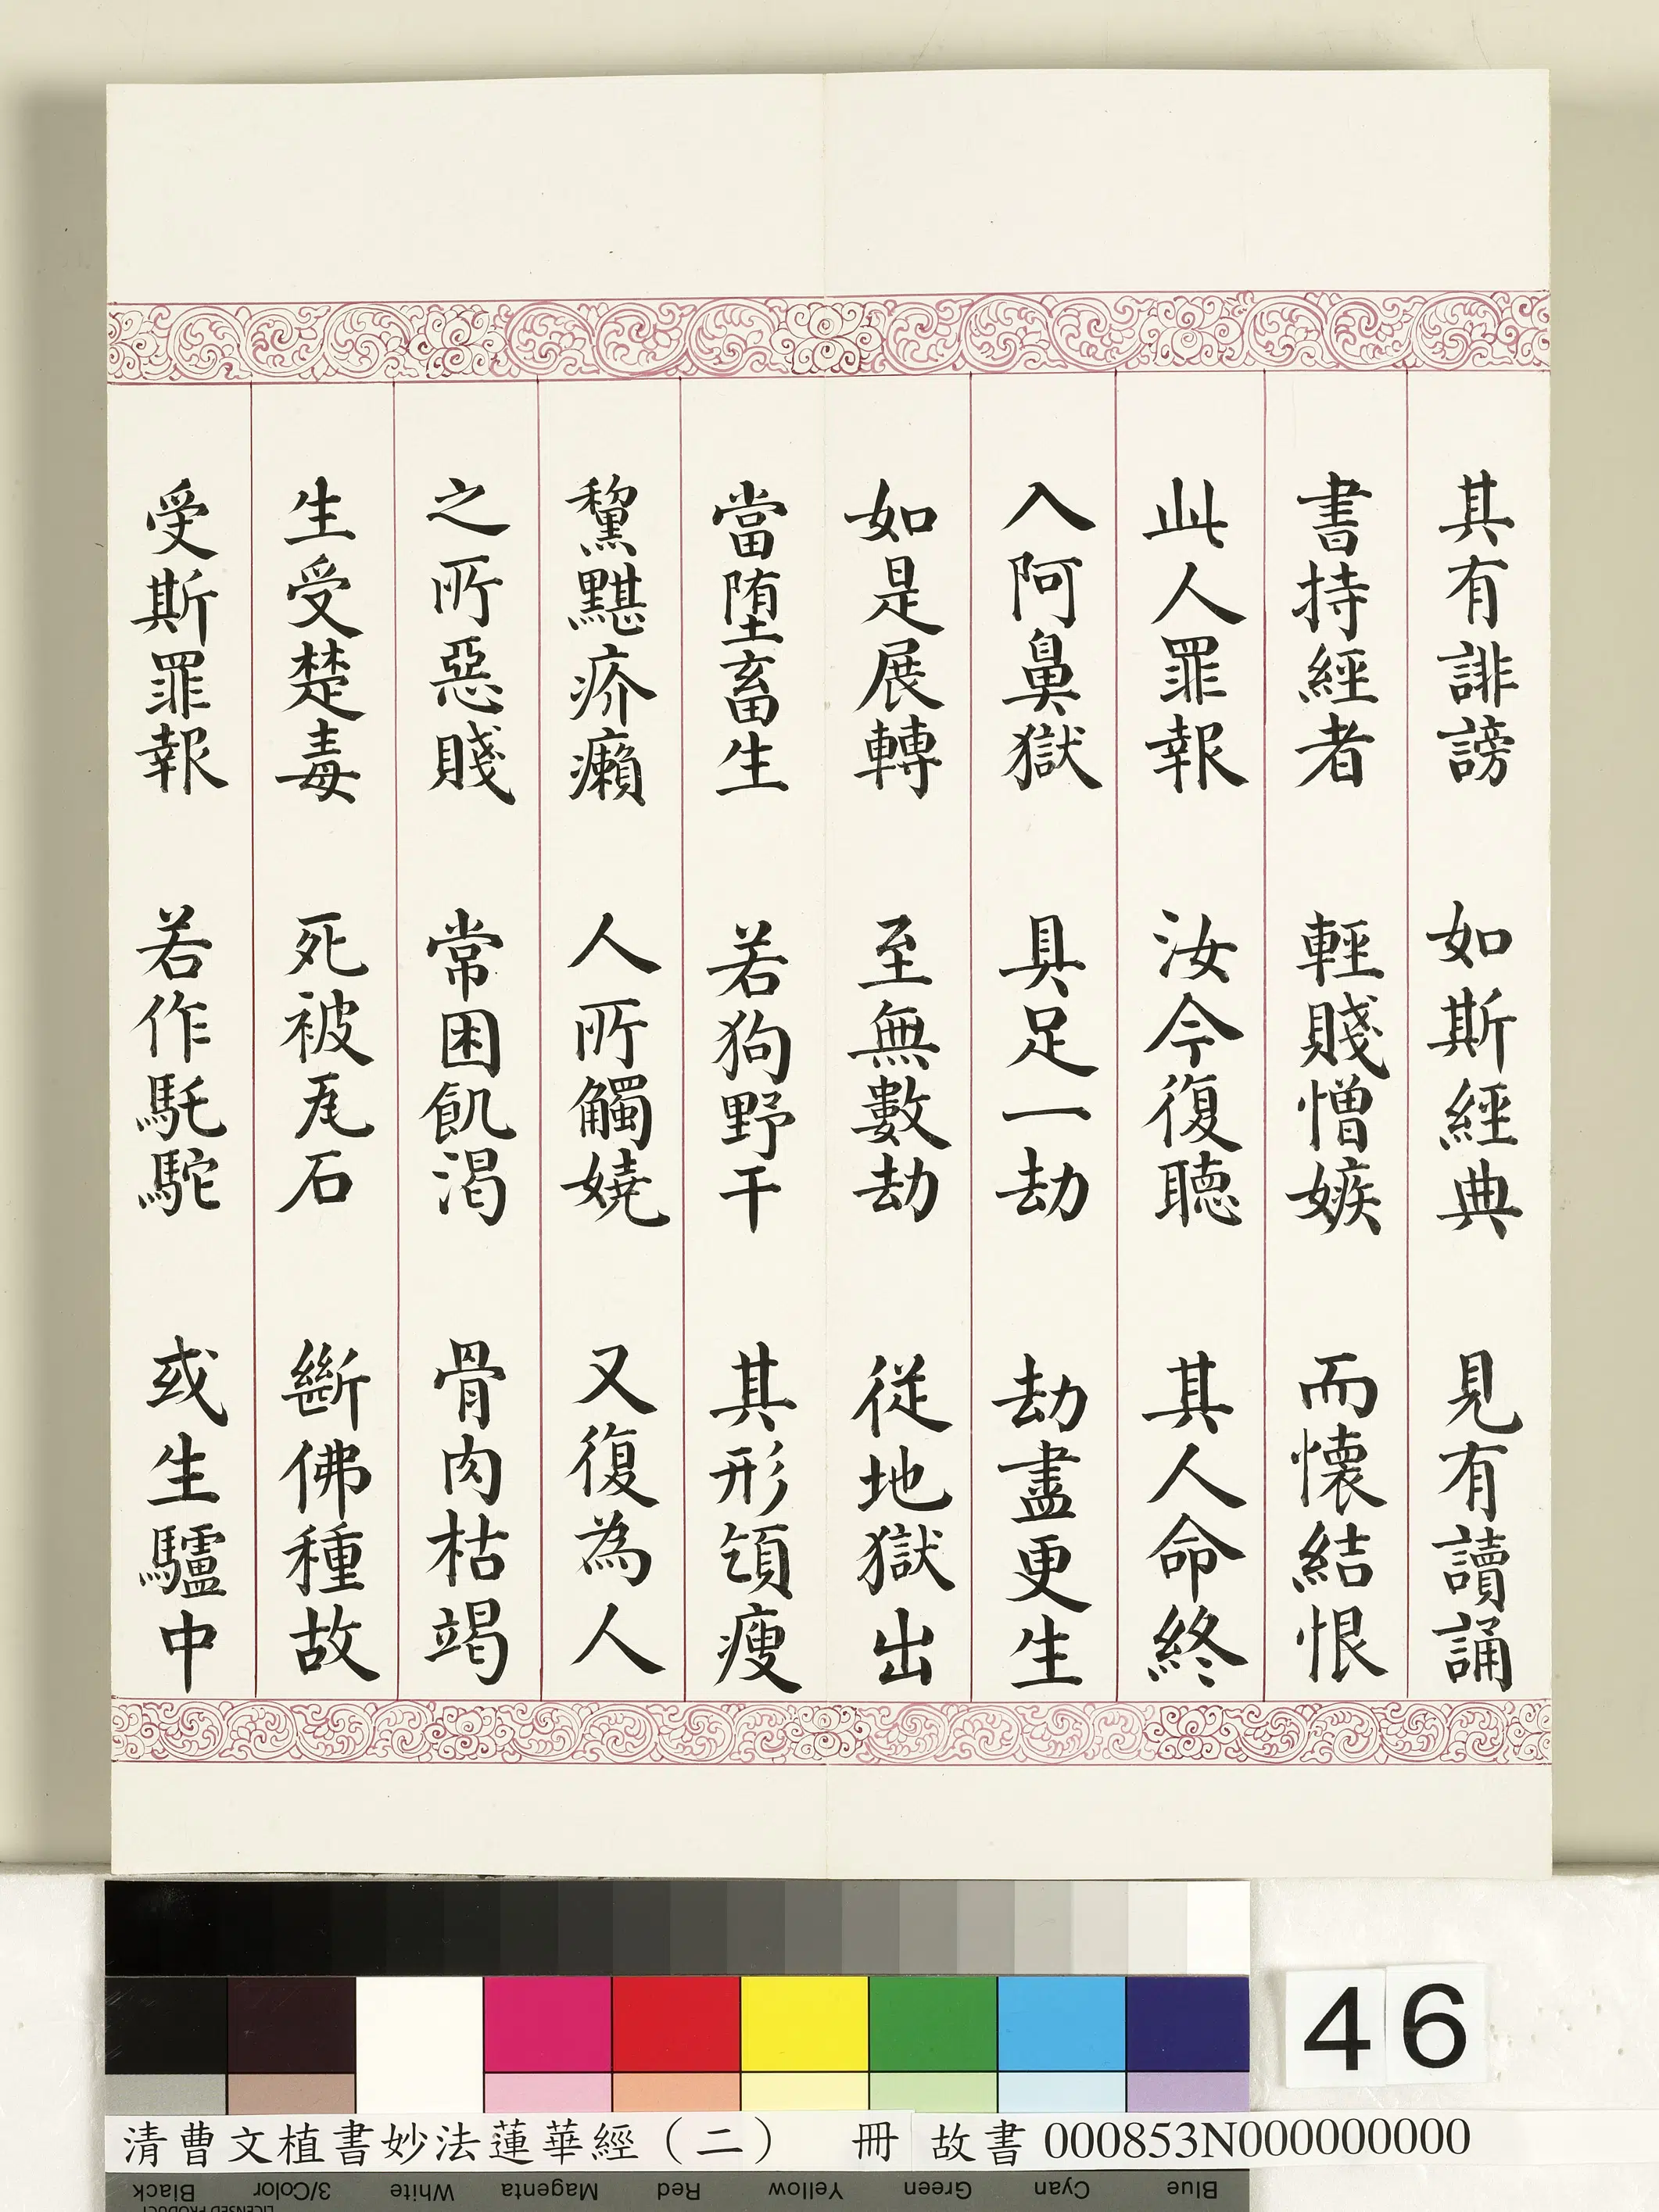 其有誹謗 如斯經典 見有讀誦
書持經者 輕賤憎嫉 而懷結恨
此人罪報 汝今復聽 其人命終
入阿鼻獄 具足一劫 劫盡更生
如是展轉 至無數劫 從地獄出
當墮畜生 若狗野干 其形頷瘦
黧黮疥癩 人所觸嬈 又復為人
之所惡賤 常困飢渴 骨肉枯竭
生受楚毒 死被瓦石 斷佛種故
受斯罪報 若作馲駝 或生驢中
46
清曹文植書妙法蓮華經（二） 冊 故書 000853N000000000
Black 3/Color White Magenta Red Yellow Green Cyan Blue
LICENSED PRODUCT